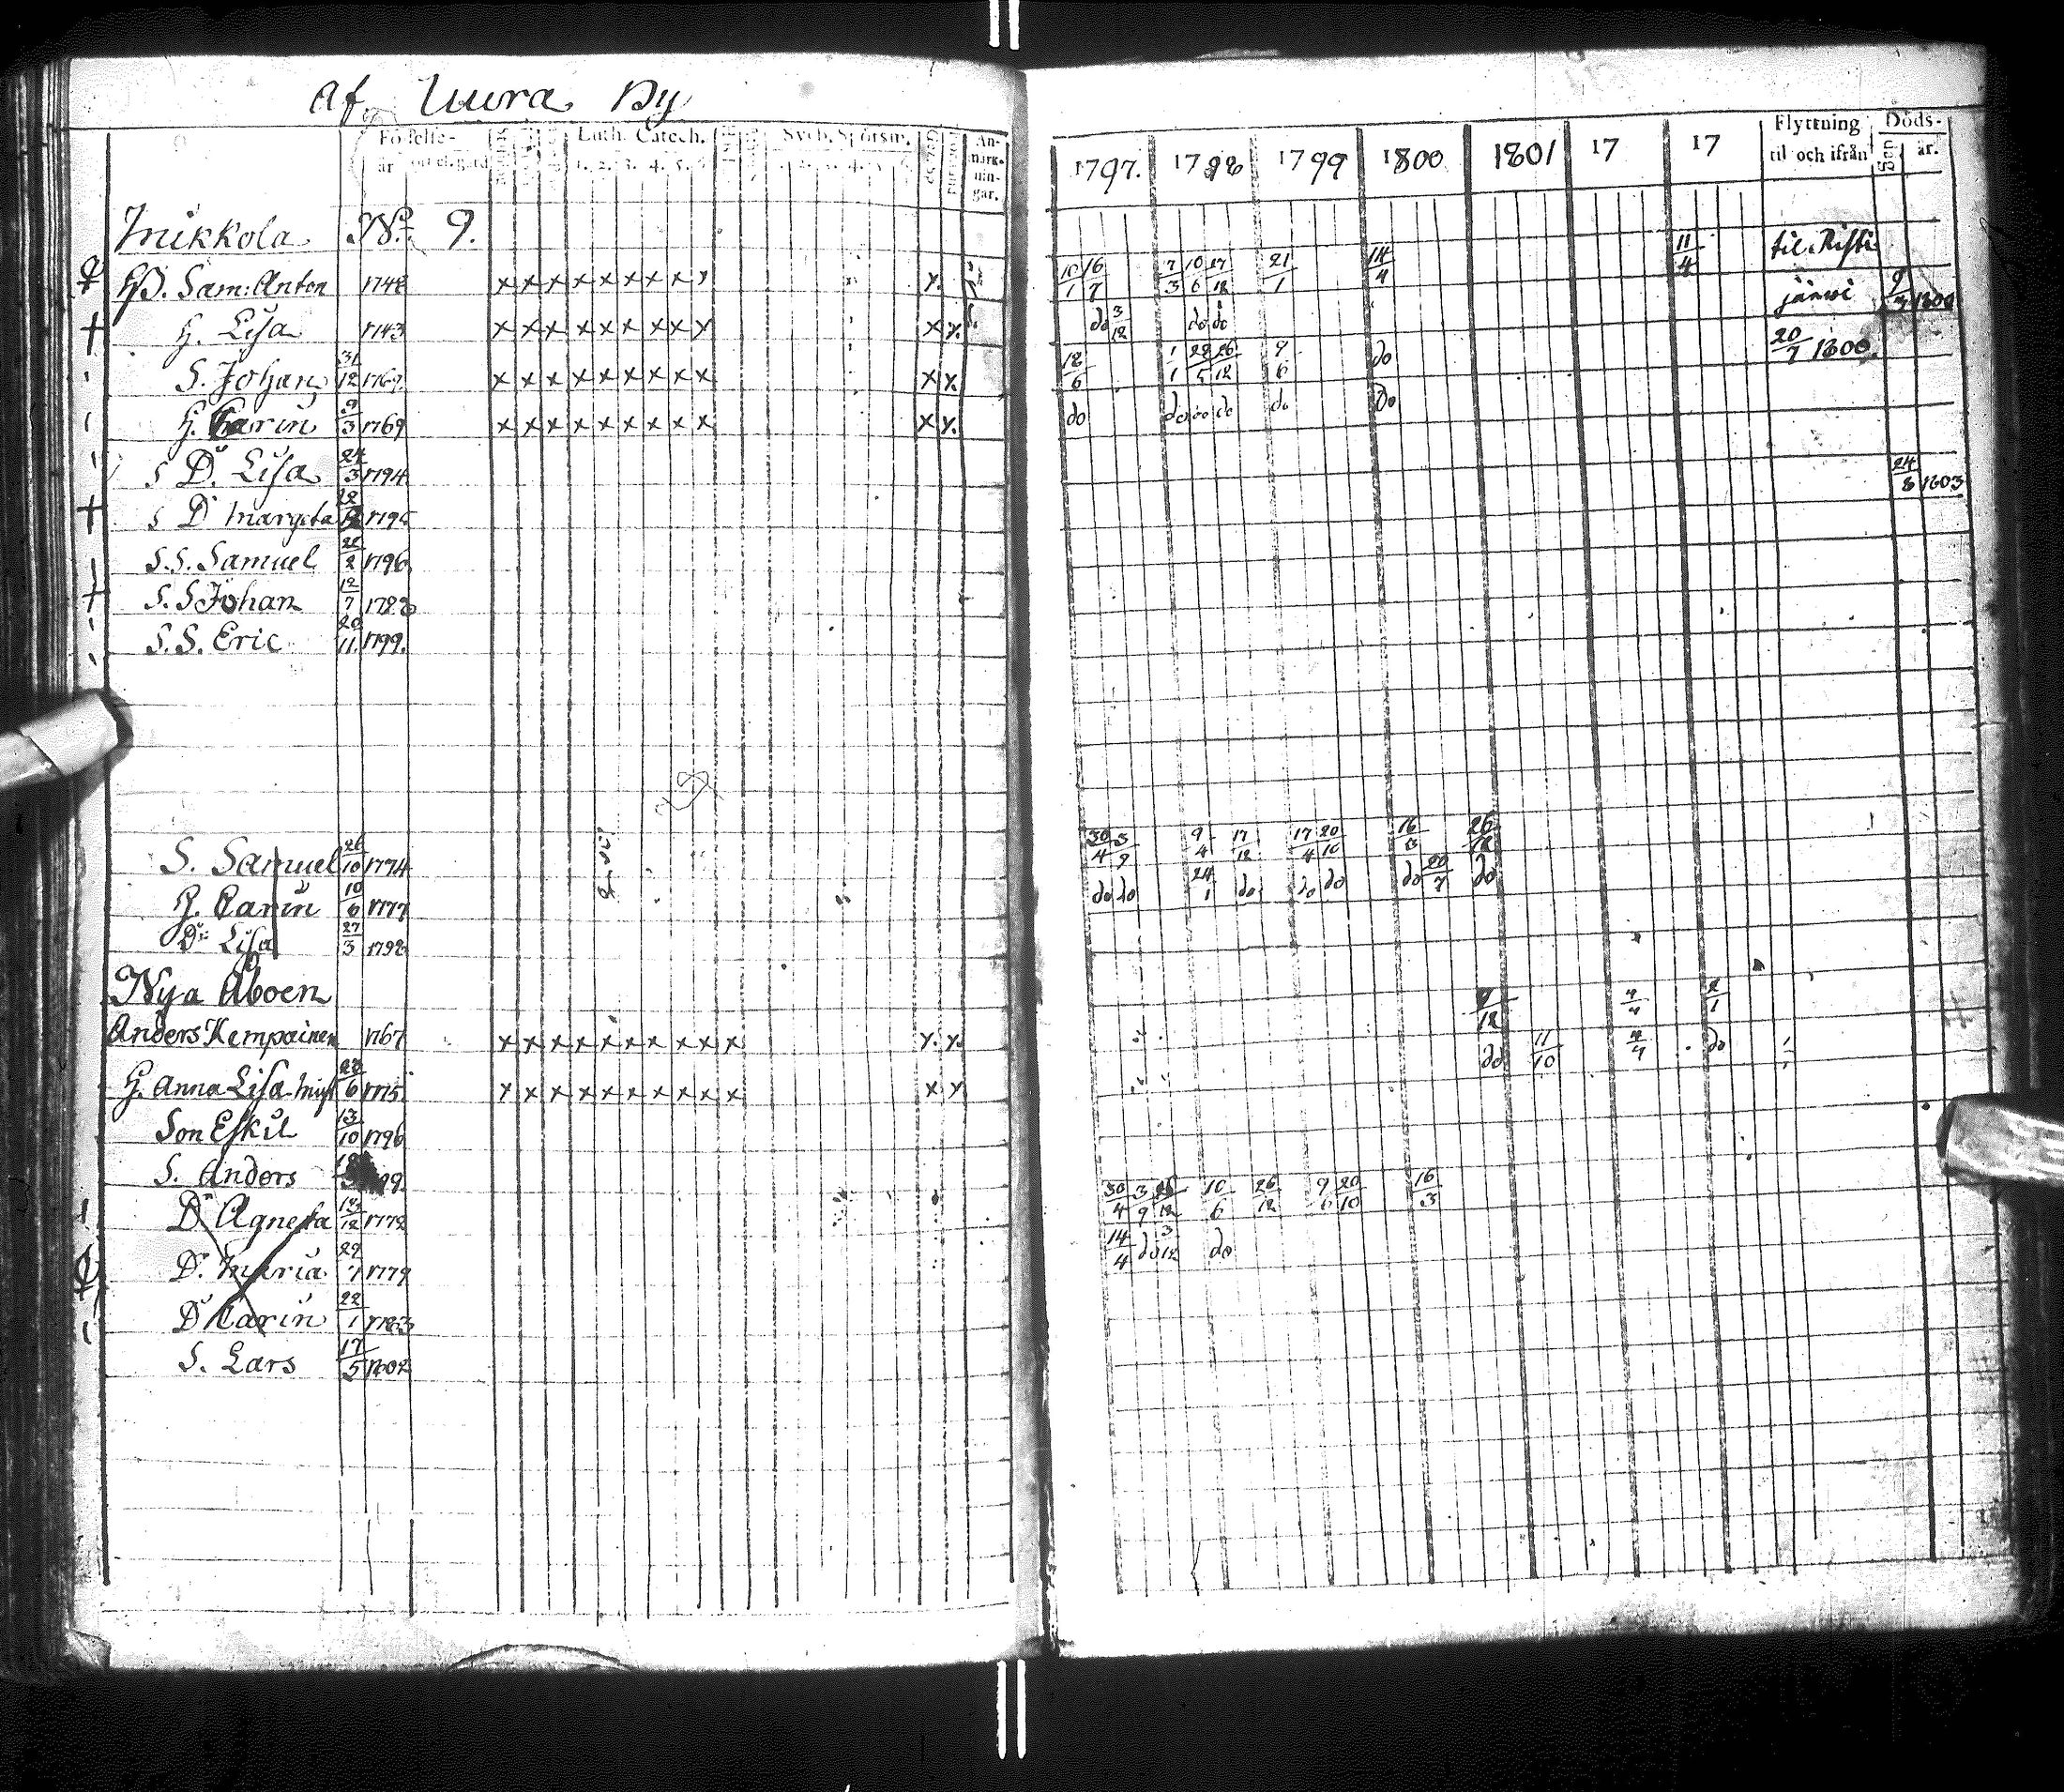 af Uura By
Födelse- Luth. Catech. Sveb. Spörsm. An-
år ort el. gård 1. 2. 3. 4. 5. 6. märk-
nin-
gar.
1797. 1798 1799 1800 1801 17 17 Flyttning Döds-
til och ifrån år.
Mikkola No. 9.
HB. Sam: Anton 1748 x x x x x x x x x x. 10/1 16/7 7/3 10/6 17/12 21/1 14/4 11/4 til Risti
järwi
H. Lisa 1743 x x x x x x x x x x x. do 3/12 do do 1800
20/7 1800.
S. Johan 31/12 1769 x x x x x x x x x x x. 12/6 1/1 28/5 26/12 9/6 do
H. Carin 9/3 1769 x x x x x x x x x x x. do do do do do Do
S D. Lisa 24/3 1794
S D Margeta 1795 24/8 1803
S.S. Samuel 1796
S.S Johan 12/7 1798
S.S. Eric 20/11 1799.
S. Samuel 26/10 1774 30/4 3/9 9/4 17/12 17/4 20/10 16/3 26/12
H. Carin 10/6 1777 do do 24/1 do do do do 20/7 do
Dr Lisa 27/3 1798
Nya Aboen
Anders Kempainen 1767 x x x x x x x x x x x. x. 9/12 2/1
H. Anna Lisa 6 1775 x x x x x x x x x x x x do 11/10 do
Son Eskil 13/10 1796
S. Anders
D Agneta 13/12 1772 30/4 3/9 26/12 10/6 26/12 9/6 20/10 16/3
D. Maria 29/7 1779 14/4 do 3/12 do
D Carin 22/1 1783
S. Lars 17/5 1802